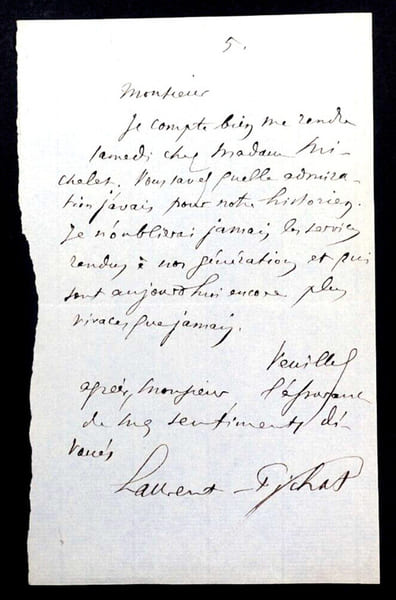 5.
Monsieur
Je compte bien me rendre
samedi chez Madame Mi-
chelet. Vous savez quelle admira-
tion j'avais pour notre historien.
Je n'oublierai jamais les services
rendus à nos générations et qui
sont aujourd'hui encore plus
vivaces que jamais.
Veuillez
agréer, Monsieur l'assurance
de mes sentiments dé-
voués
Laurent-Pichat